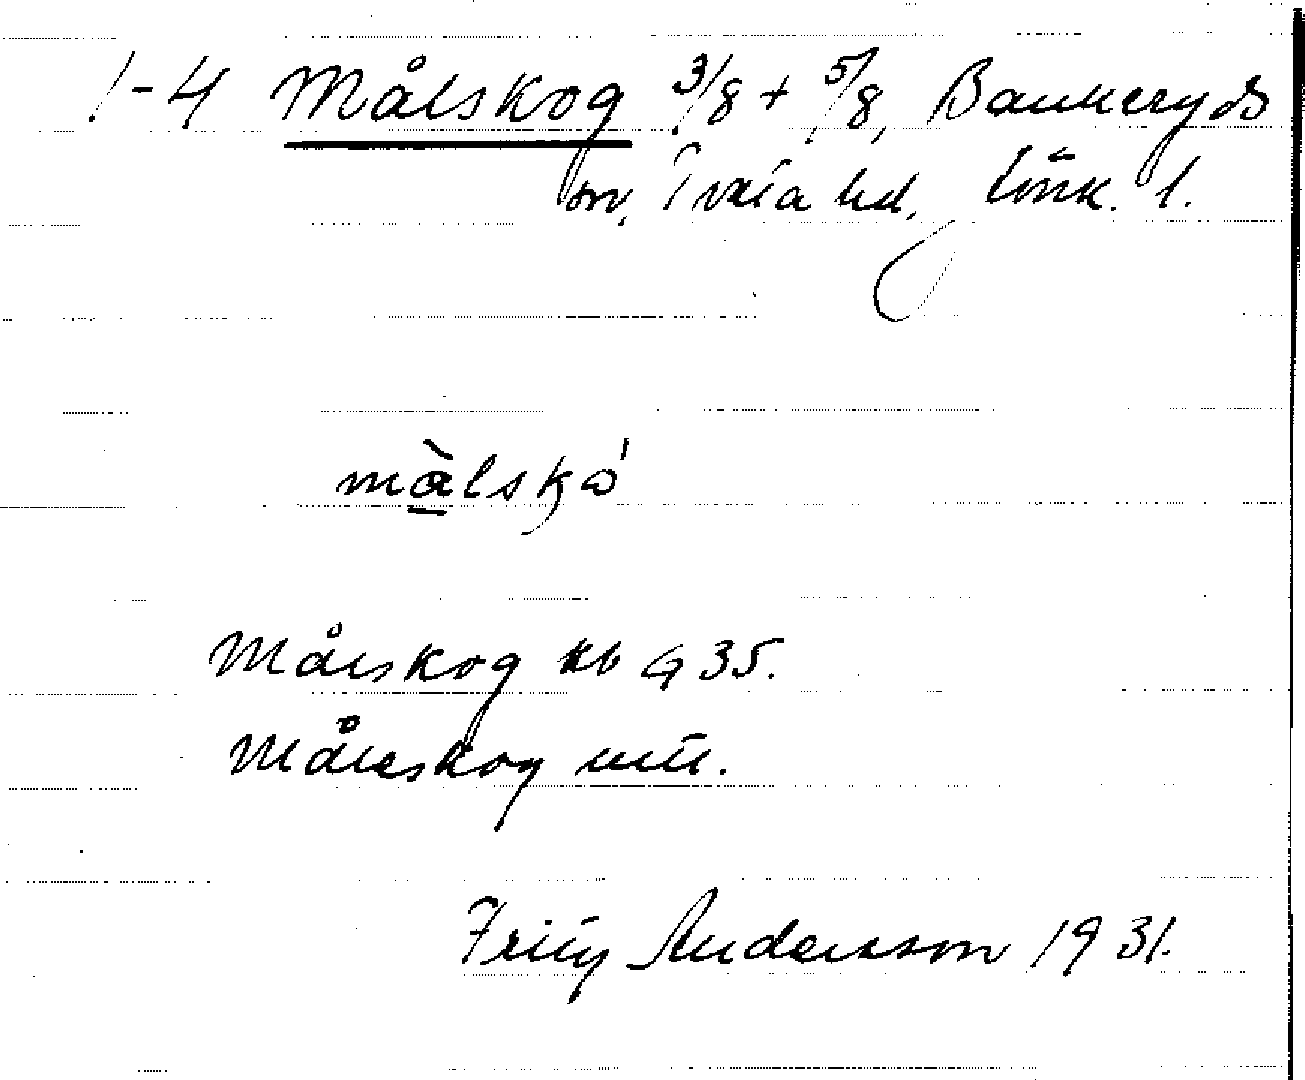 1-4 Målskog 3/8 + 5/8, Bankeryds
sn, Tveta hd, Jönk. l.
målskɷ
Målskog kb G 35.
Målskog
Fritz Andersson 1931.